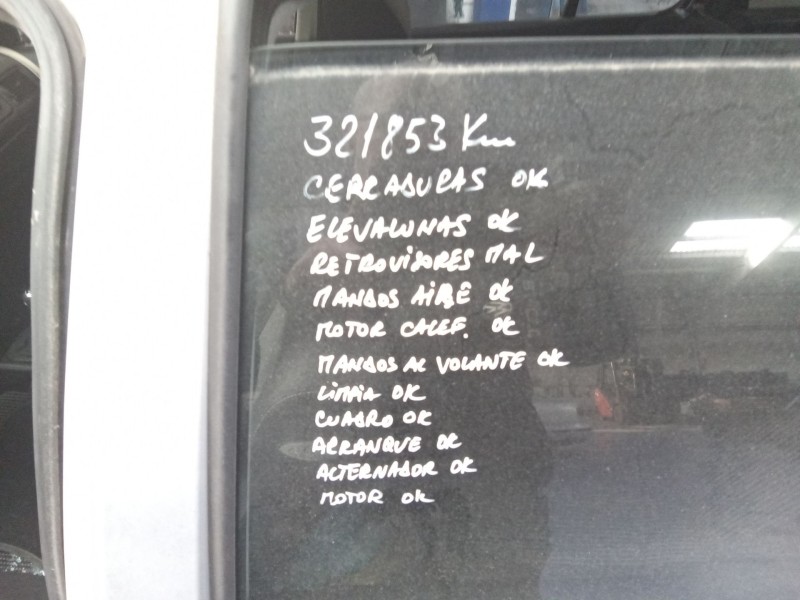 321853 Km
CERRADURAS OK
ELEVALUNAS OK
RETROVISORES MAL
MANDOS AIRE OK
MOTOR CALEF. OK
MANDOS AL VOLANTE OK
LIMPIA OK
CUADRO OK
ARRANQUE OK
ALTERNADOR OK
MOTOR OK